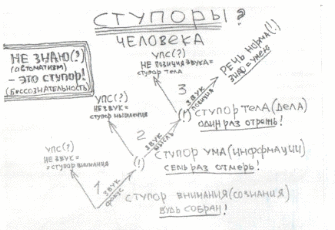 СТУПОРЫ?
ЧЕЛОВЕКА
НЕ ЗНАЮ(?)
(автоматизм)
— ЭТО СТУПОР!
(БЕССОЗНАТЕЛЬНОСТЬ
УПС(?)
СТУПОР ТЕЛА
РЕЧЬ НОРМА(!)
ЗНАЮ = УМЕЮ
УПС(?)
НЕ ЗВУК =
СТУПОР МЫШЛЕНИЯ
3
ЗВУК
УПС(?)
НЕ ЗВУК =
СТУПОР ВНИМАНИЯ
2
ЗВУК
(!) СТУПОР ТЕЛА(ДЕЛА)
ОДИН РАЗ ОТРЕЖЬ!
1
ЗВУК
ФОКУС
(!) СТУПОР УМА(ИНФОРМАЦИИ)
СЕМЬ РАЗ ОТМЕРЬ!
СТУПОР ВНИМАНИЯ(СОЗНАНИЯ)
БУДЬ СОБРАН!